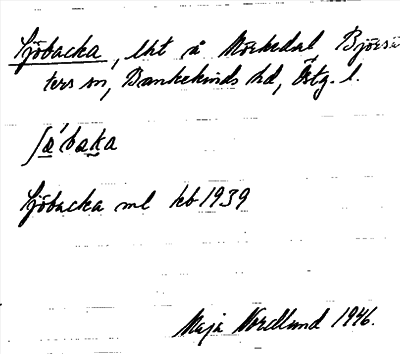 Sjöbacka, lht å Morkedal Björsä
ters sn, Bankekinds hd, Östg. l.
ʃá'baka
Sjöbacka ml kb 1939
Maja Nordlund 1946.